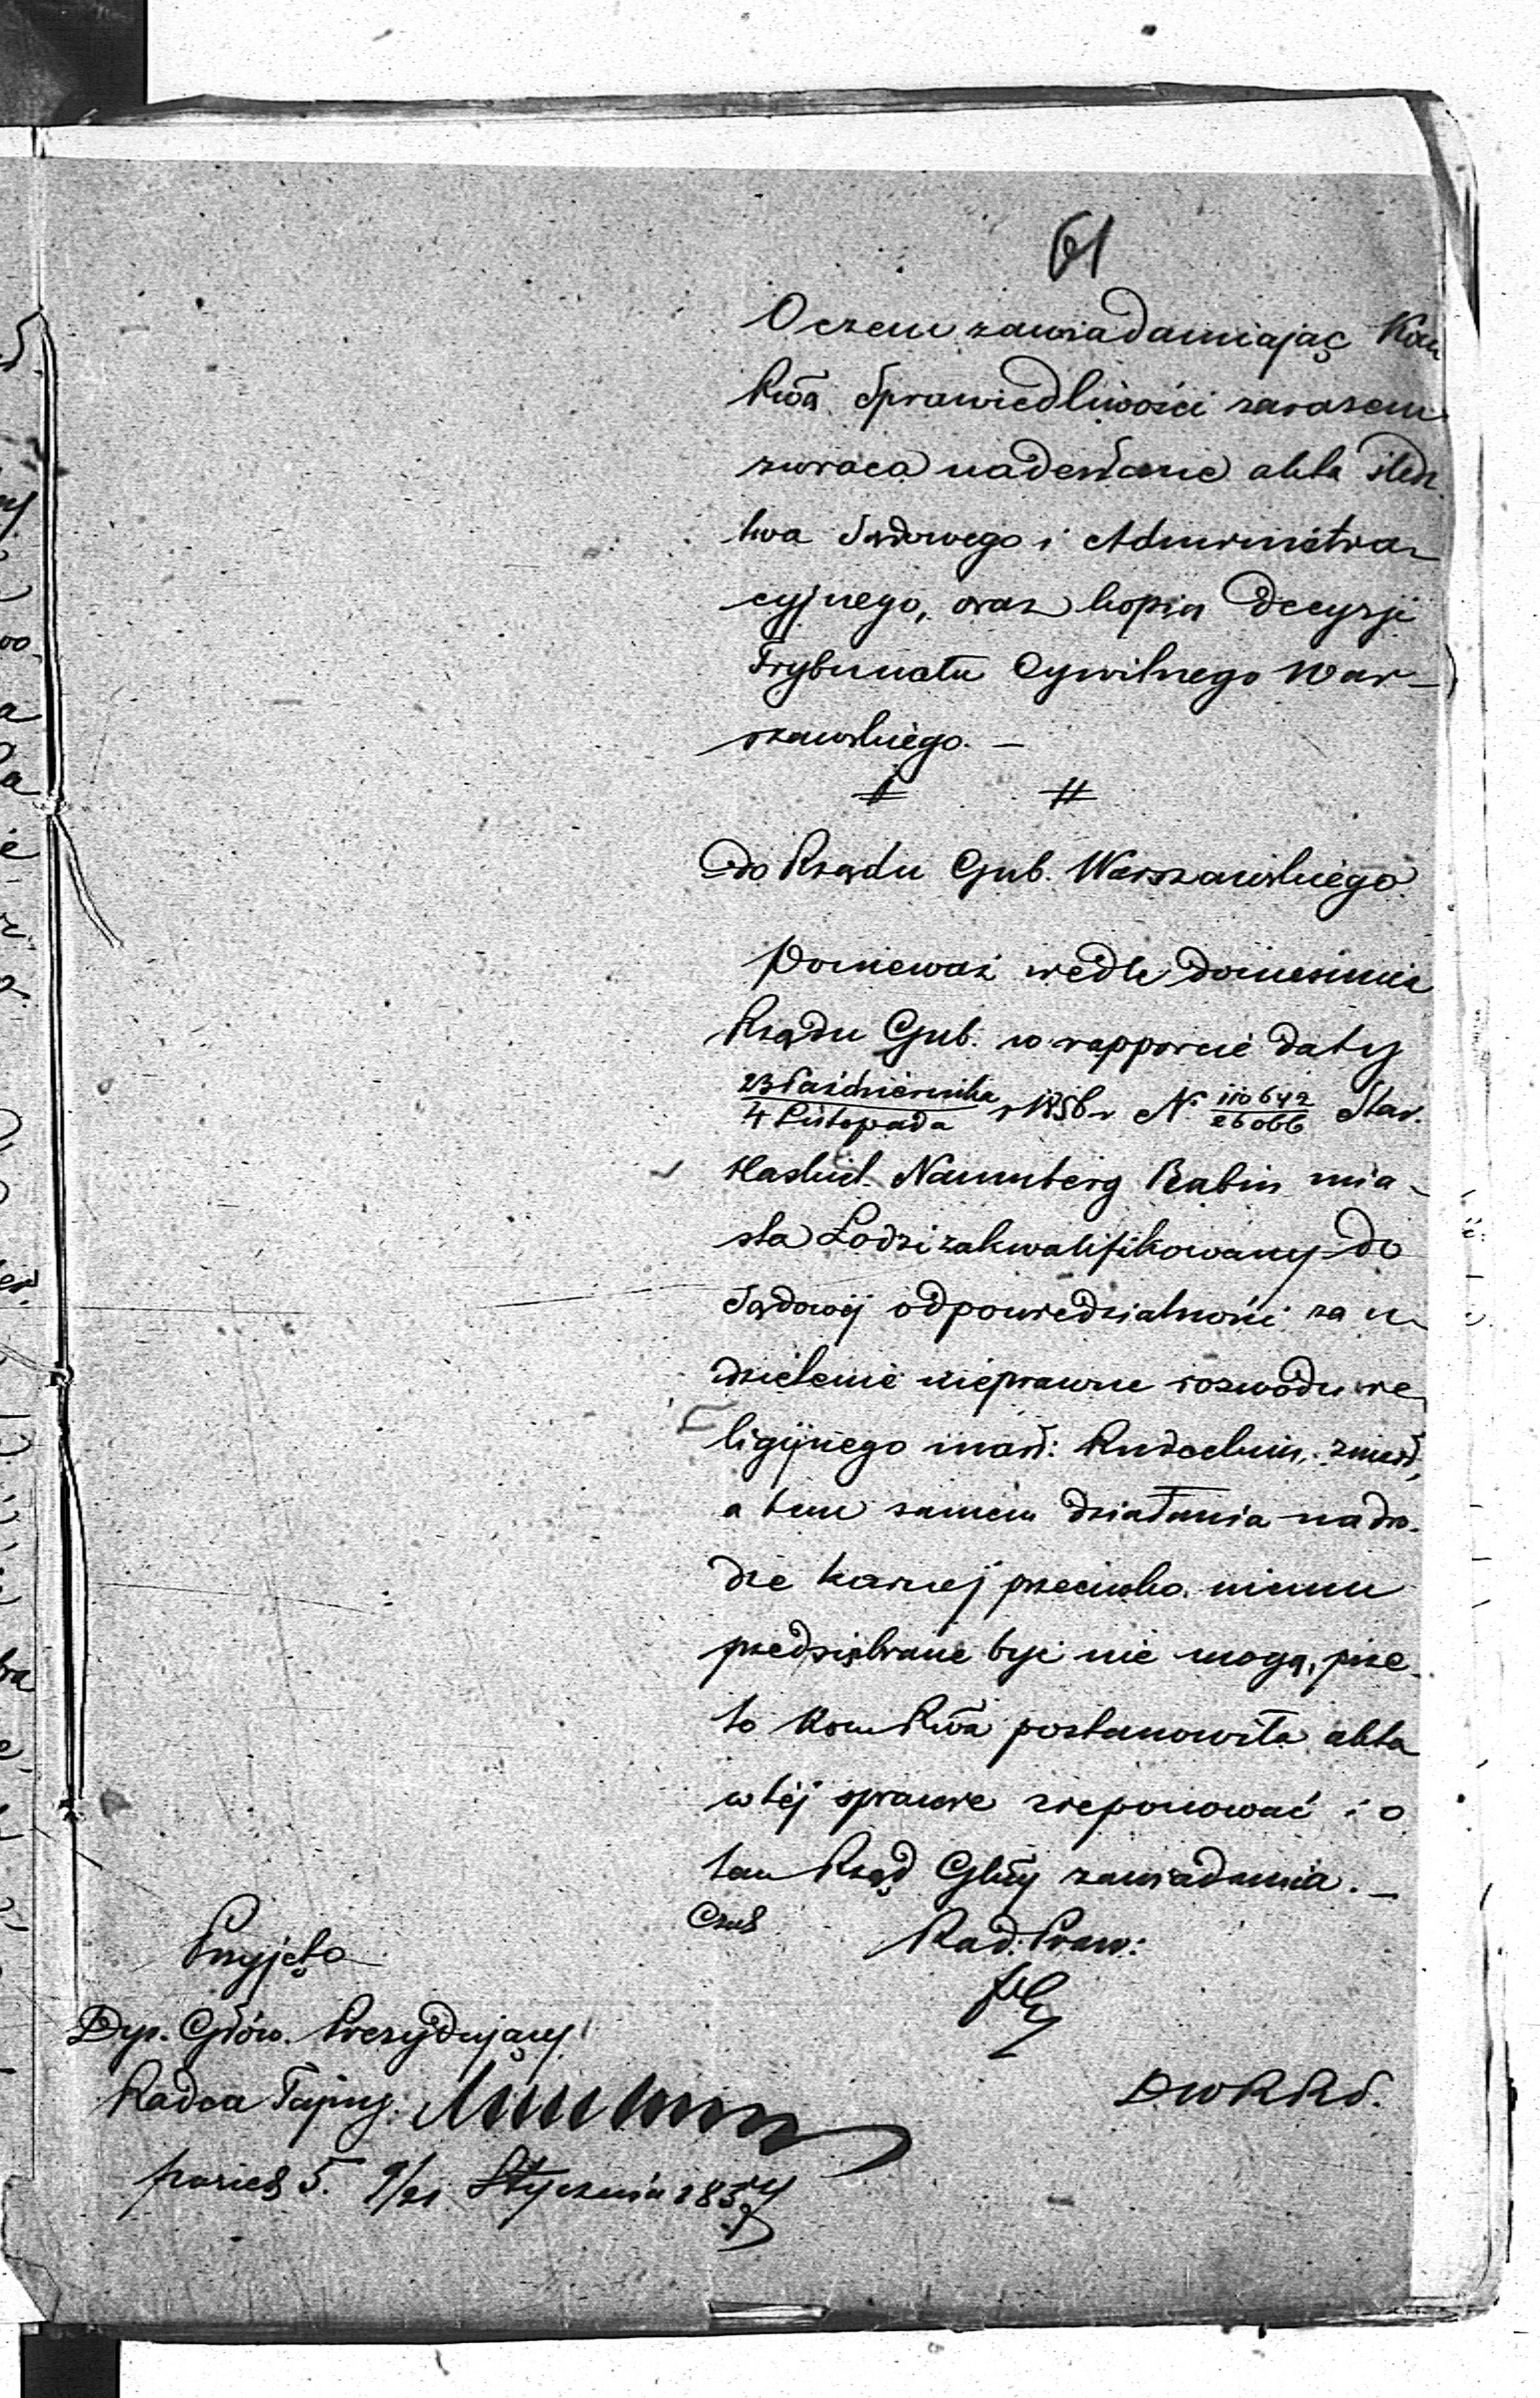 61
O czem zawiadamiając Kom
Rwą Sprawiedliwości zarazem
zwraca nadesłane akta śledz
twa Sądowego i Administra-
cyjnego, oraz kopią Decyzji
Trybunału Cywilnego War-
szawskiego. —
Do Rządu Gub. Warszawskiego.
Ponieważ wedle doniesienia
Rządu Gub. w rapporcie daty
23 Października / 4 Listopada 1856 r N. 110642 / 26066 Star.
Haskiel Naumberg Rabin mia-
sta Łodzi zakwalifikowany do
Sądowéj odpowiedzialności za u-
dzielenie nieprawne rozwodu re-
ligijnego małż: zmarł,
a tem samem działania na dro-
dze karnej przeciwko niemu
przedsiębrane być nie mogą, prze-
to Kom Rwa postanowiła akta
w téj sprawie zreponować i o
tem Rząd Glny zawiadamia. —
Rad. Praw:
Przyjęto
Dyr. Głów. Prezydujący
Radca Tajny
D.W.R.Kś.
posied 5. 9/21 Stycznia 1857